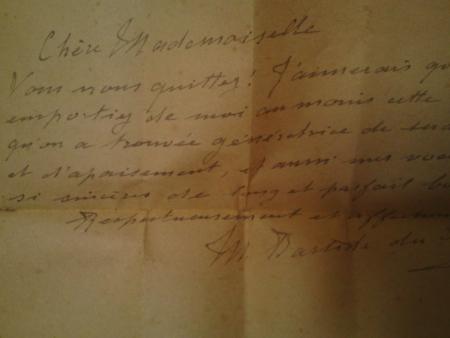 Chère Mademoiselle
Vous nous quittez! J'aimerais qu
emportiez de moi au moins cette
qu'on a trouvée génératrice de
et d'apaisement, et aussi mes voeux
si sincères de long et parfait
Respectueusement et affectue
M.